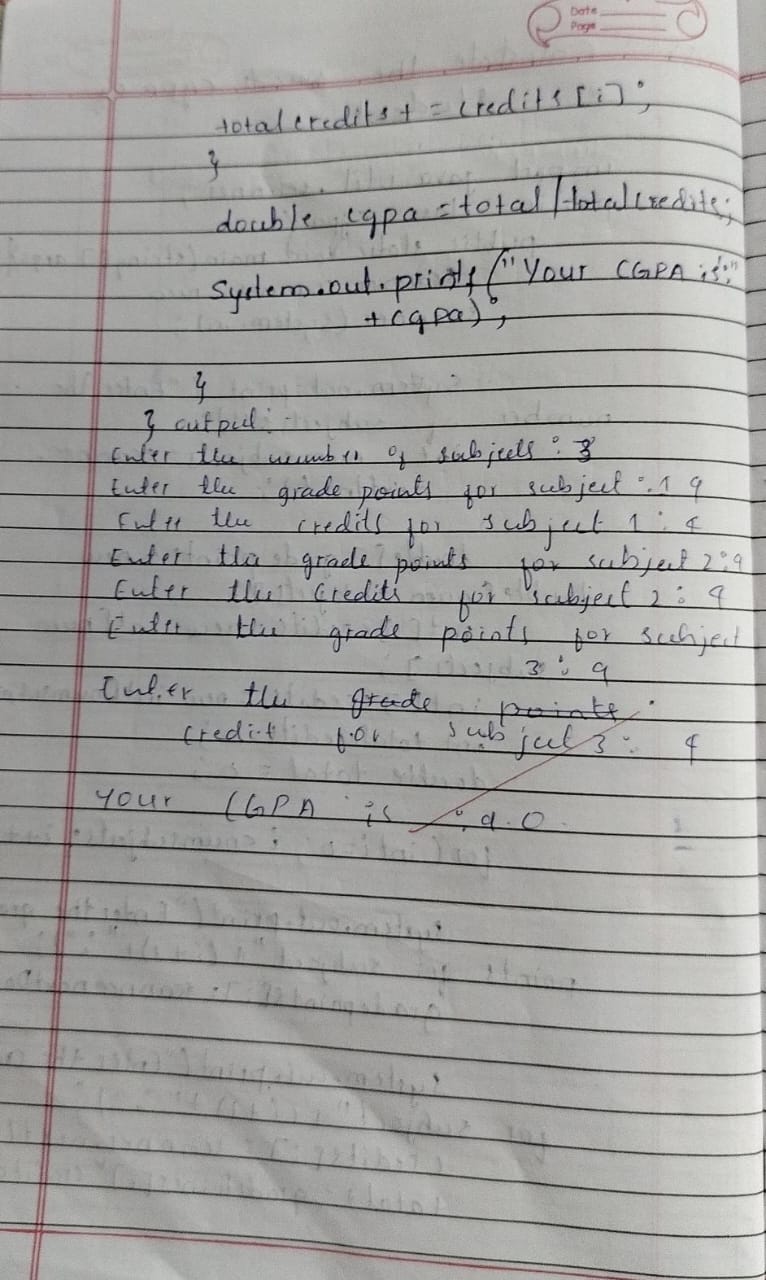 Date
Page
total credits + = credits [i];
}
double cgpa = total / total credits;
System.out.printf ("Your CGPA is:"
+ cgpa);
}
} output:-
Enter the number of subjects : 3
Enter the grade points for subject :1 9
Enter the credits for subject 1 : 4
Enter the grade points for subject 2:9
Enter the credits for subject 2 : 9
Enter the grade points for subject
3 : 9
Enter the grade points :
credit for subject 3 : 4
Your CGPA is : 9.0